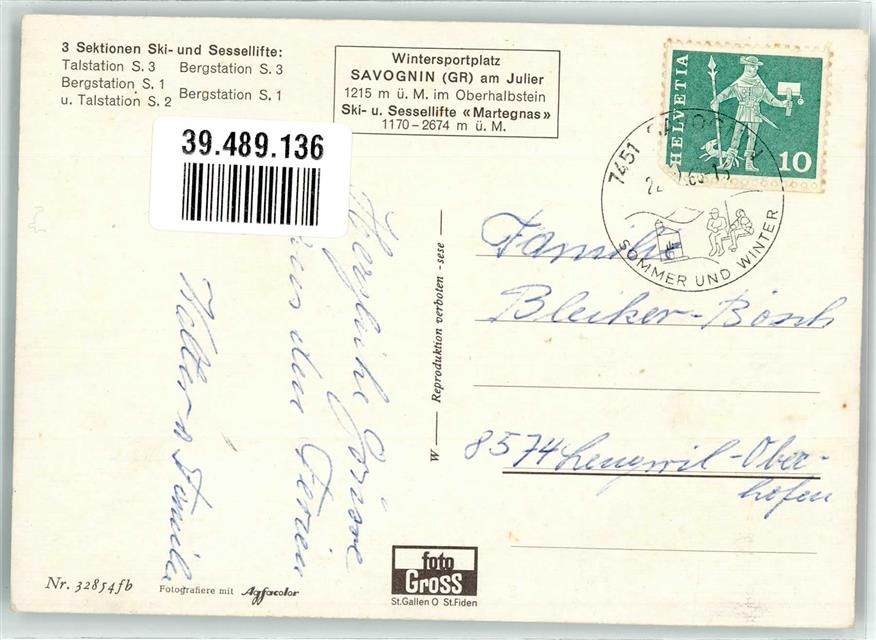 3 Sektionen Ski- und Sessellifte:
Talstation S. 3 Bergstation S. 3
Bergstation S. 1
u. Talstation S. 2 Bergstation S. 1
Wintersportplatz
SAVOGNIN (GR) am Julier
1215 m ü. M. im Oberhalbstein
Ski- u. Sessellifte «Martegnas»
1170–2674 m ü. M.
HELVETIA
10
7451
SOMMER UND WINTER
39.489.136
Herzliche Grüsse
aus den Ferien
Walter u Familie
W — Reproduktion verboten - sese —
Familie
Bleiker-Bösch
8574 Lengwil-Ober-
hofen
foto
Gross
St.Gallen O St.Fiden
Nr. 32854fb
Fotografiere mit Agfacolor